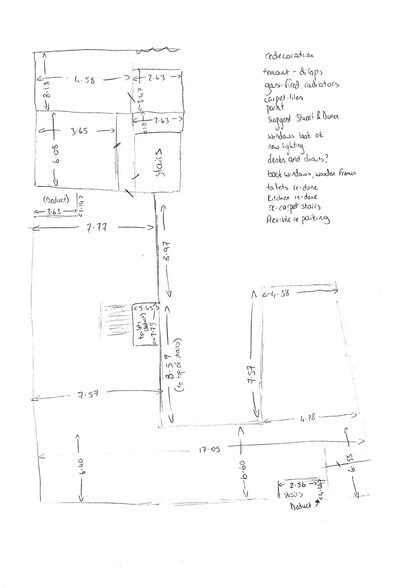 redecoration
tenant - dilaps
gas-fired radiators
carpet tiles
paint
suggest Stuart &
windows look at
new lighting
desks and chairs?
back windows, wooden frames
toilets re-done
kitchen re-done
re-carpet stairs
flexible re parking
8.13
4.58
2.43
3.47
2.43
3.65
6.08
stairs
(Deduct)
3.63
7.77
8.97
toilets
8.57
(to top of stairs)
7.57
4.58
7.57
4.78
17.05
6.40
6.60
6.55
2.56
stairs
Deduct